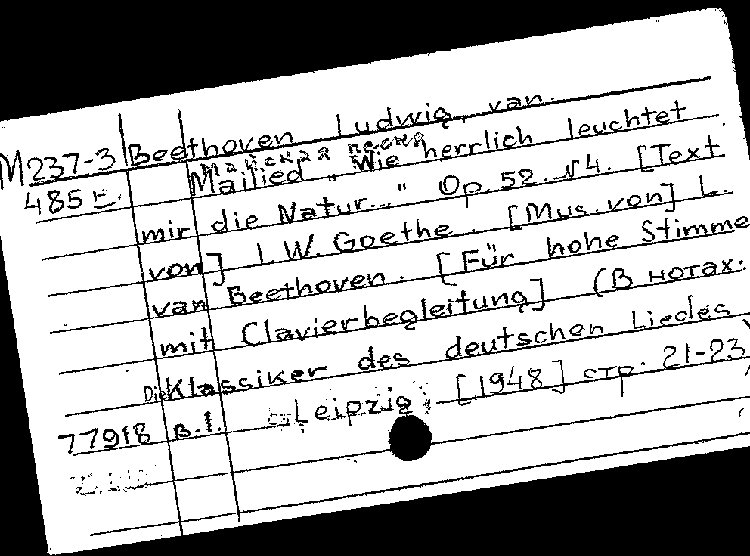 Beethoven Ludwig, van.
M237-3
485
Майская песня
Mailied „Wie herrlich leuchtet
mir die Natur..." Op. 52. №4. [Text
von] I. W. Goethe. [Mus. von] L.
van Beethoven. [Für hohe Stimme
mit Clavierbegleitung] (В нотах:
Die Klassiker des deutschen Liedes
B.1. Leipzig [1948] стр. 21-23)
77918